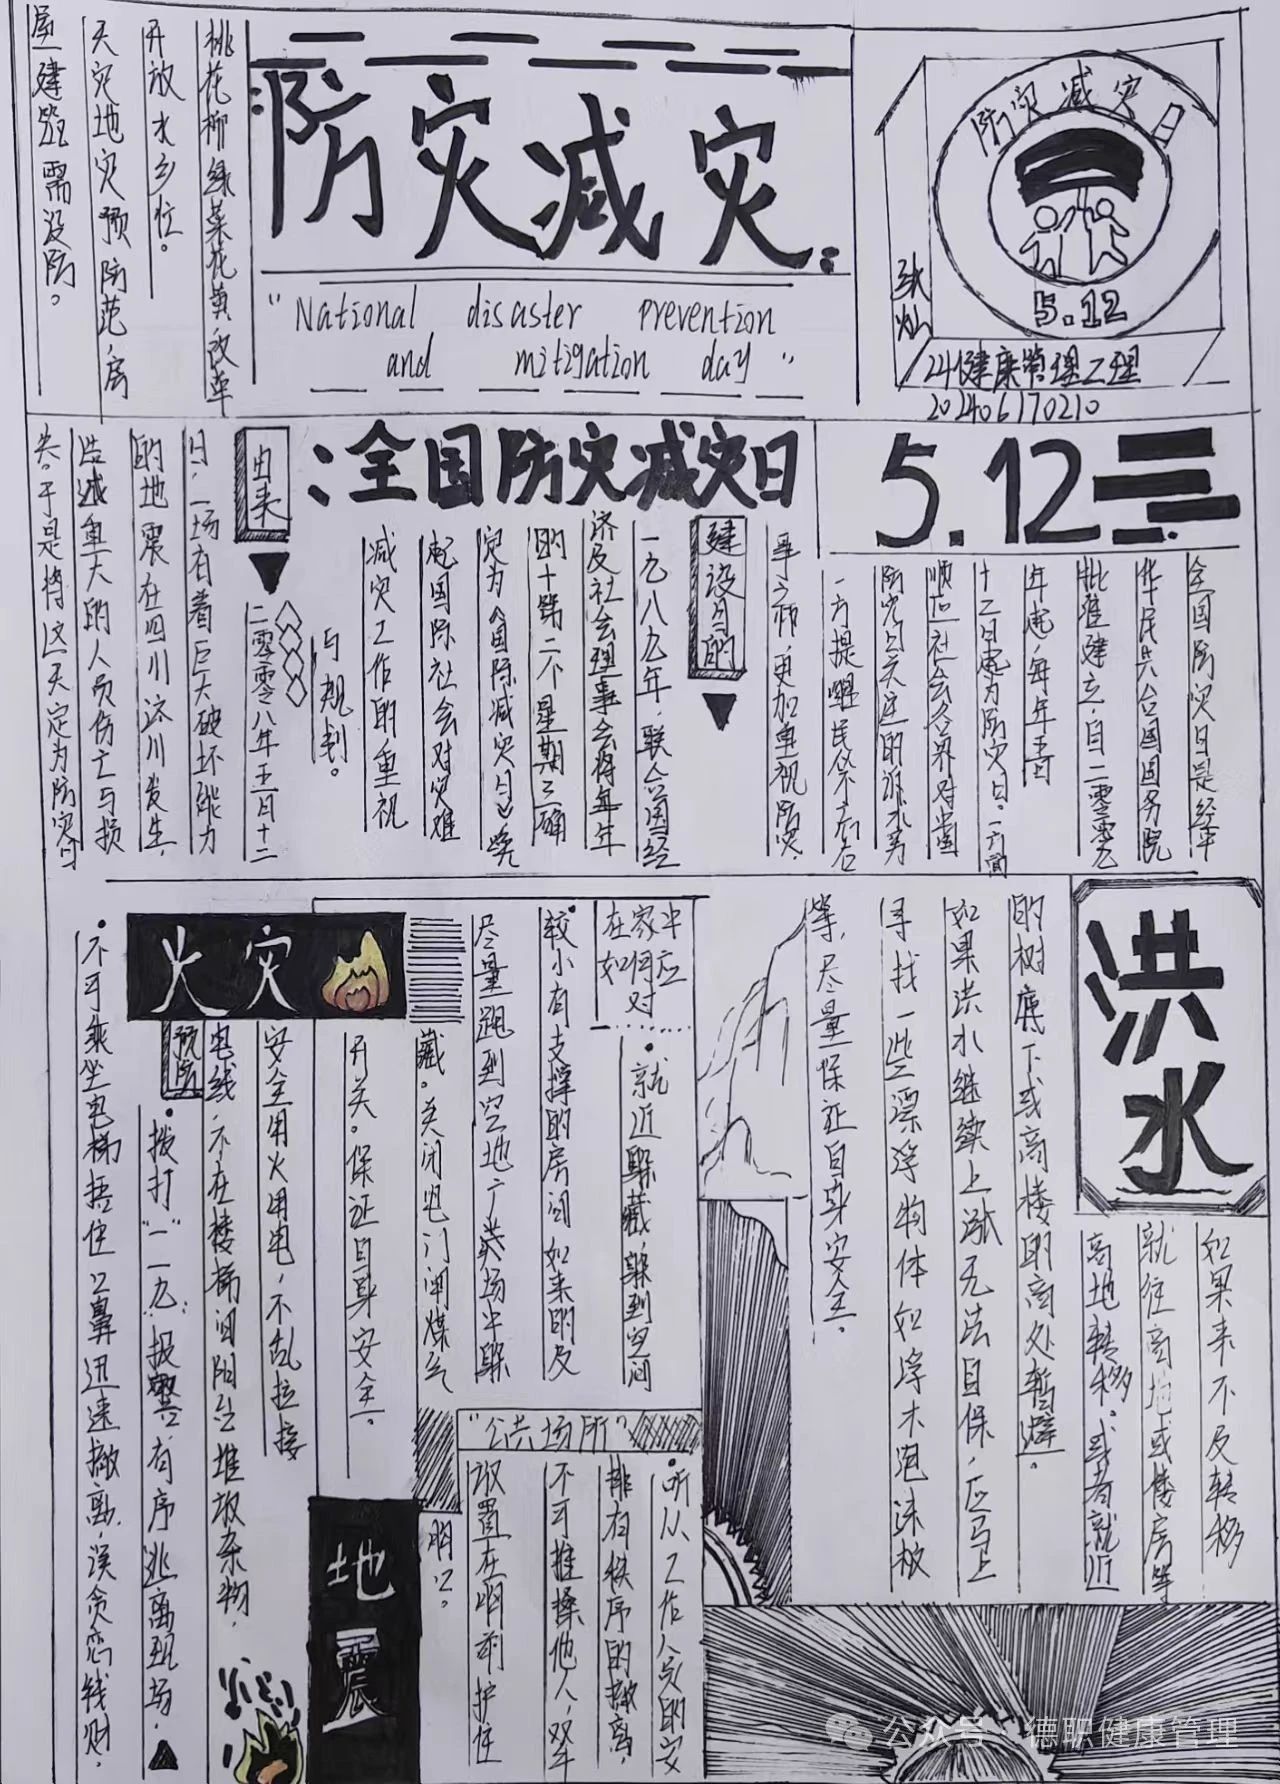 防灾减灾:
"National disaster prevention
and mitigation day"
防灾减灾日
5.12
24健康管理二班
202406170210
桃花柳绿菜花黄,改革
开放水乡位。
天灾地灾预防范,房
屋建筑需设防。
5.12
全国防灾日是经中
华民共合国国务院
批准建立,自二零零九
年起,每年五月
十二日定为防灾日。一方面
顺应社会各界对我国
防灾日关注的诉求,另
一方提醒民众不忘
更加重视防灾
:全国防灾减灾日
建设目的
一九八九年,联合国经
济及社会理事会将每年
的十第二个星期三确
定为《国际减灾日》唤
起国际社会对灾难
减灾工作的重视
与规划。
由来
二零零八年五月十二
日,一场有着巨大破坏能力
的地震在四川汶川发生,
造成重大的人员伤亡与损
失。于是将这一天定为防灾日
洪水
如果来不及转移
就往高地或楼房等
高地转移。或者就近
的树底下或高楼的高处暂避。
如果洪水继续上涨无法自保,应马上
寻找一些漂浮物体如浮木泡沫板
等,尽量保证自身安全。
地震
在家中应
如何应对
·就近躲藏,躲到空间
较小有支撑的房间如来的及
尽量跑到空地广场中躲
藏。关闭电门闸煤气
开关。保证自身安全。
"公共场所"
·听从工作人员的安
排有秩序的撤离,
不可推搡他人,双手
放置在胸前护住
胸口。
火灾
预防
安全用火用电,不乱拉接
电线,不在楼梯间阳台堆放杂物,
·拨打"一一九"报警,有序逃离现场,
·不可乘坐电梯捂住口鼻迅速撤离,误贪恋钱财。
公众号·德职健康管理